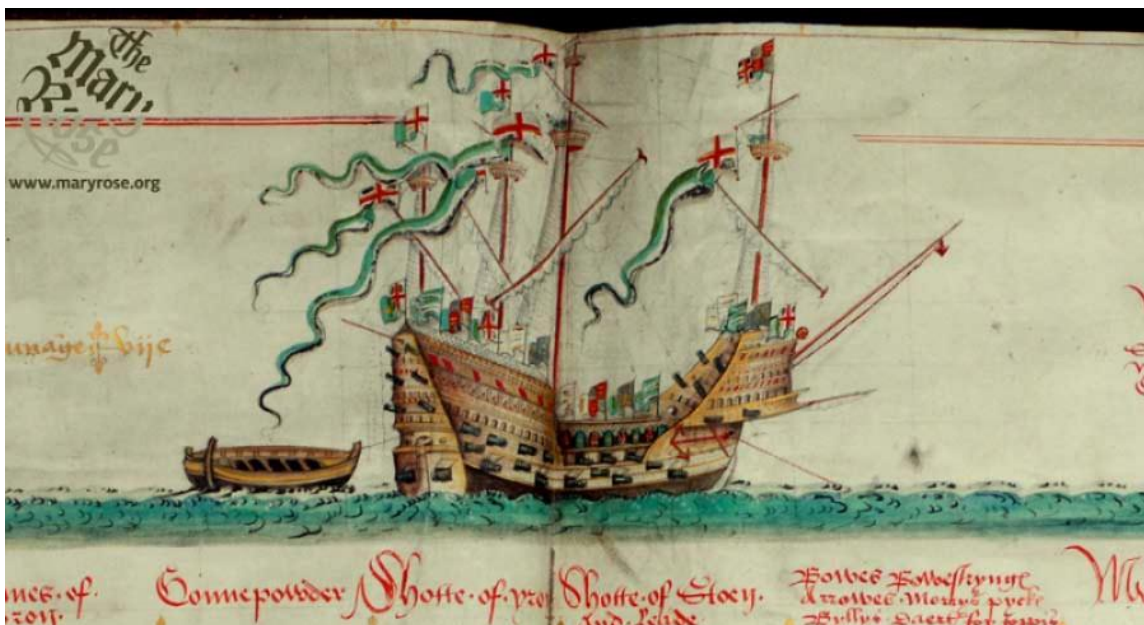 the
Mary
Rose
www.maryrose.org
unnage vijc
nes.of.
yron.
Gonnepowder
Shotte.of.yro
Shotte.of.Stoen.
And.Leade
Bowes Bowestrynge
Arrowes Morrys pycke
Byllys Daerts for
M